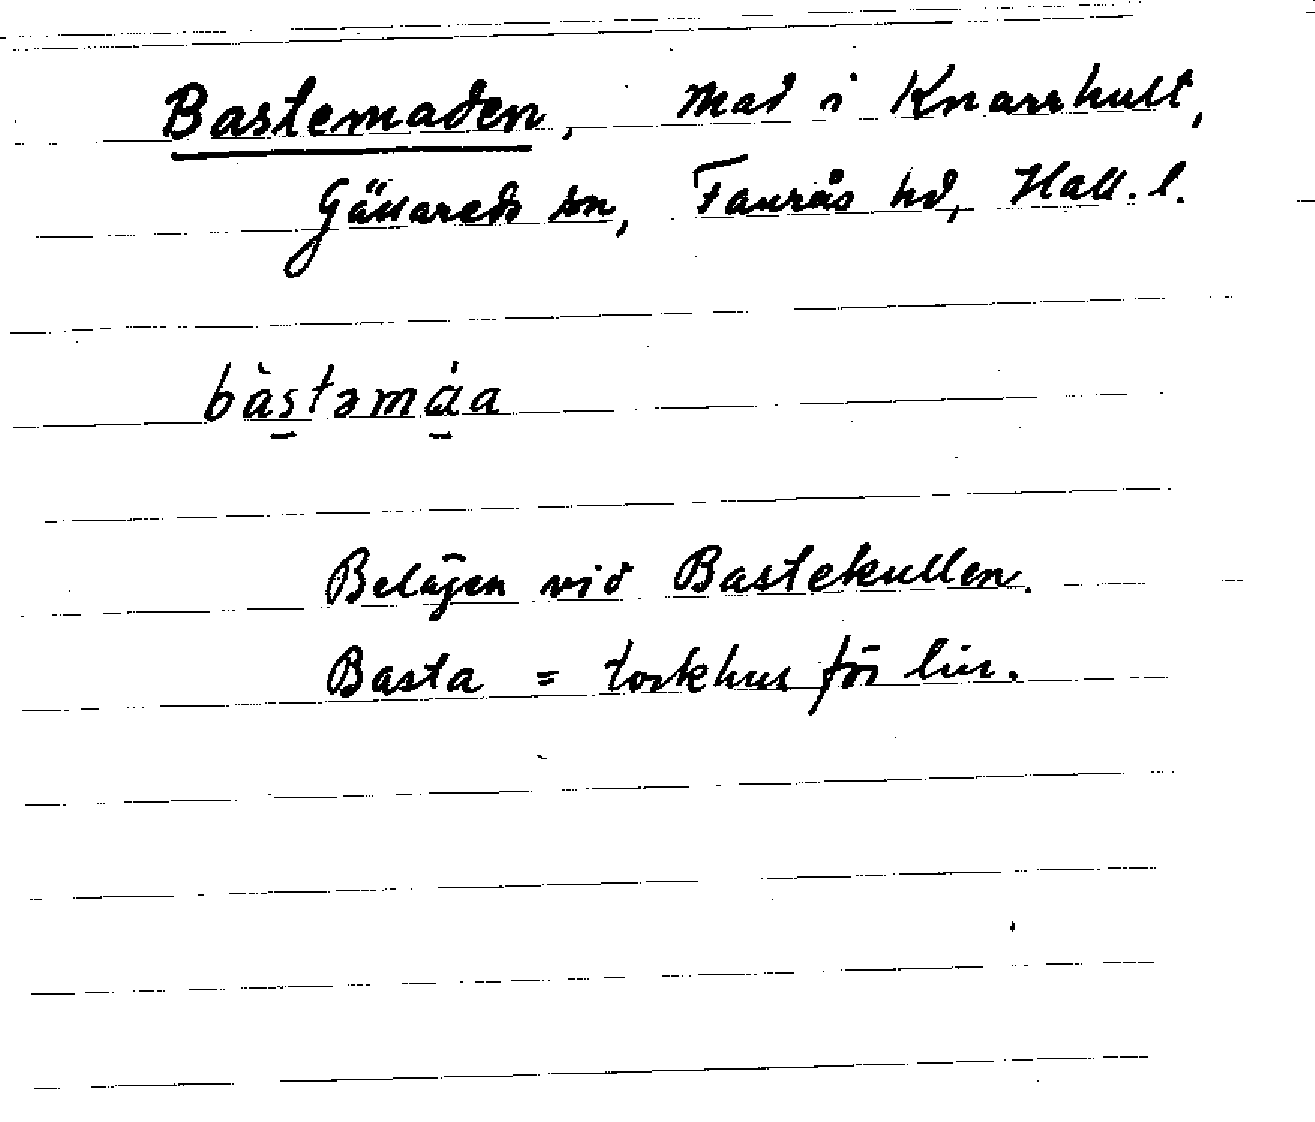 Bastemaden, mad i Knarrhult,
Gällareds sn, Faurås hd, Hall. l.
bàstəmáa
Belägen vid Bastekullen.
Basta = torkhus för lin.